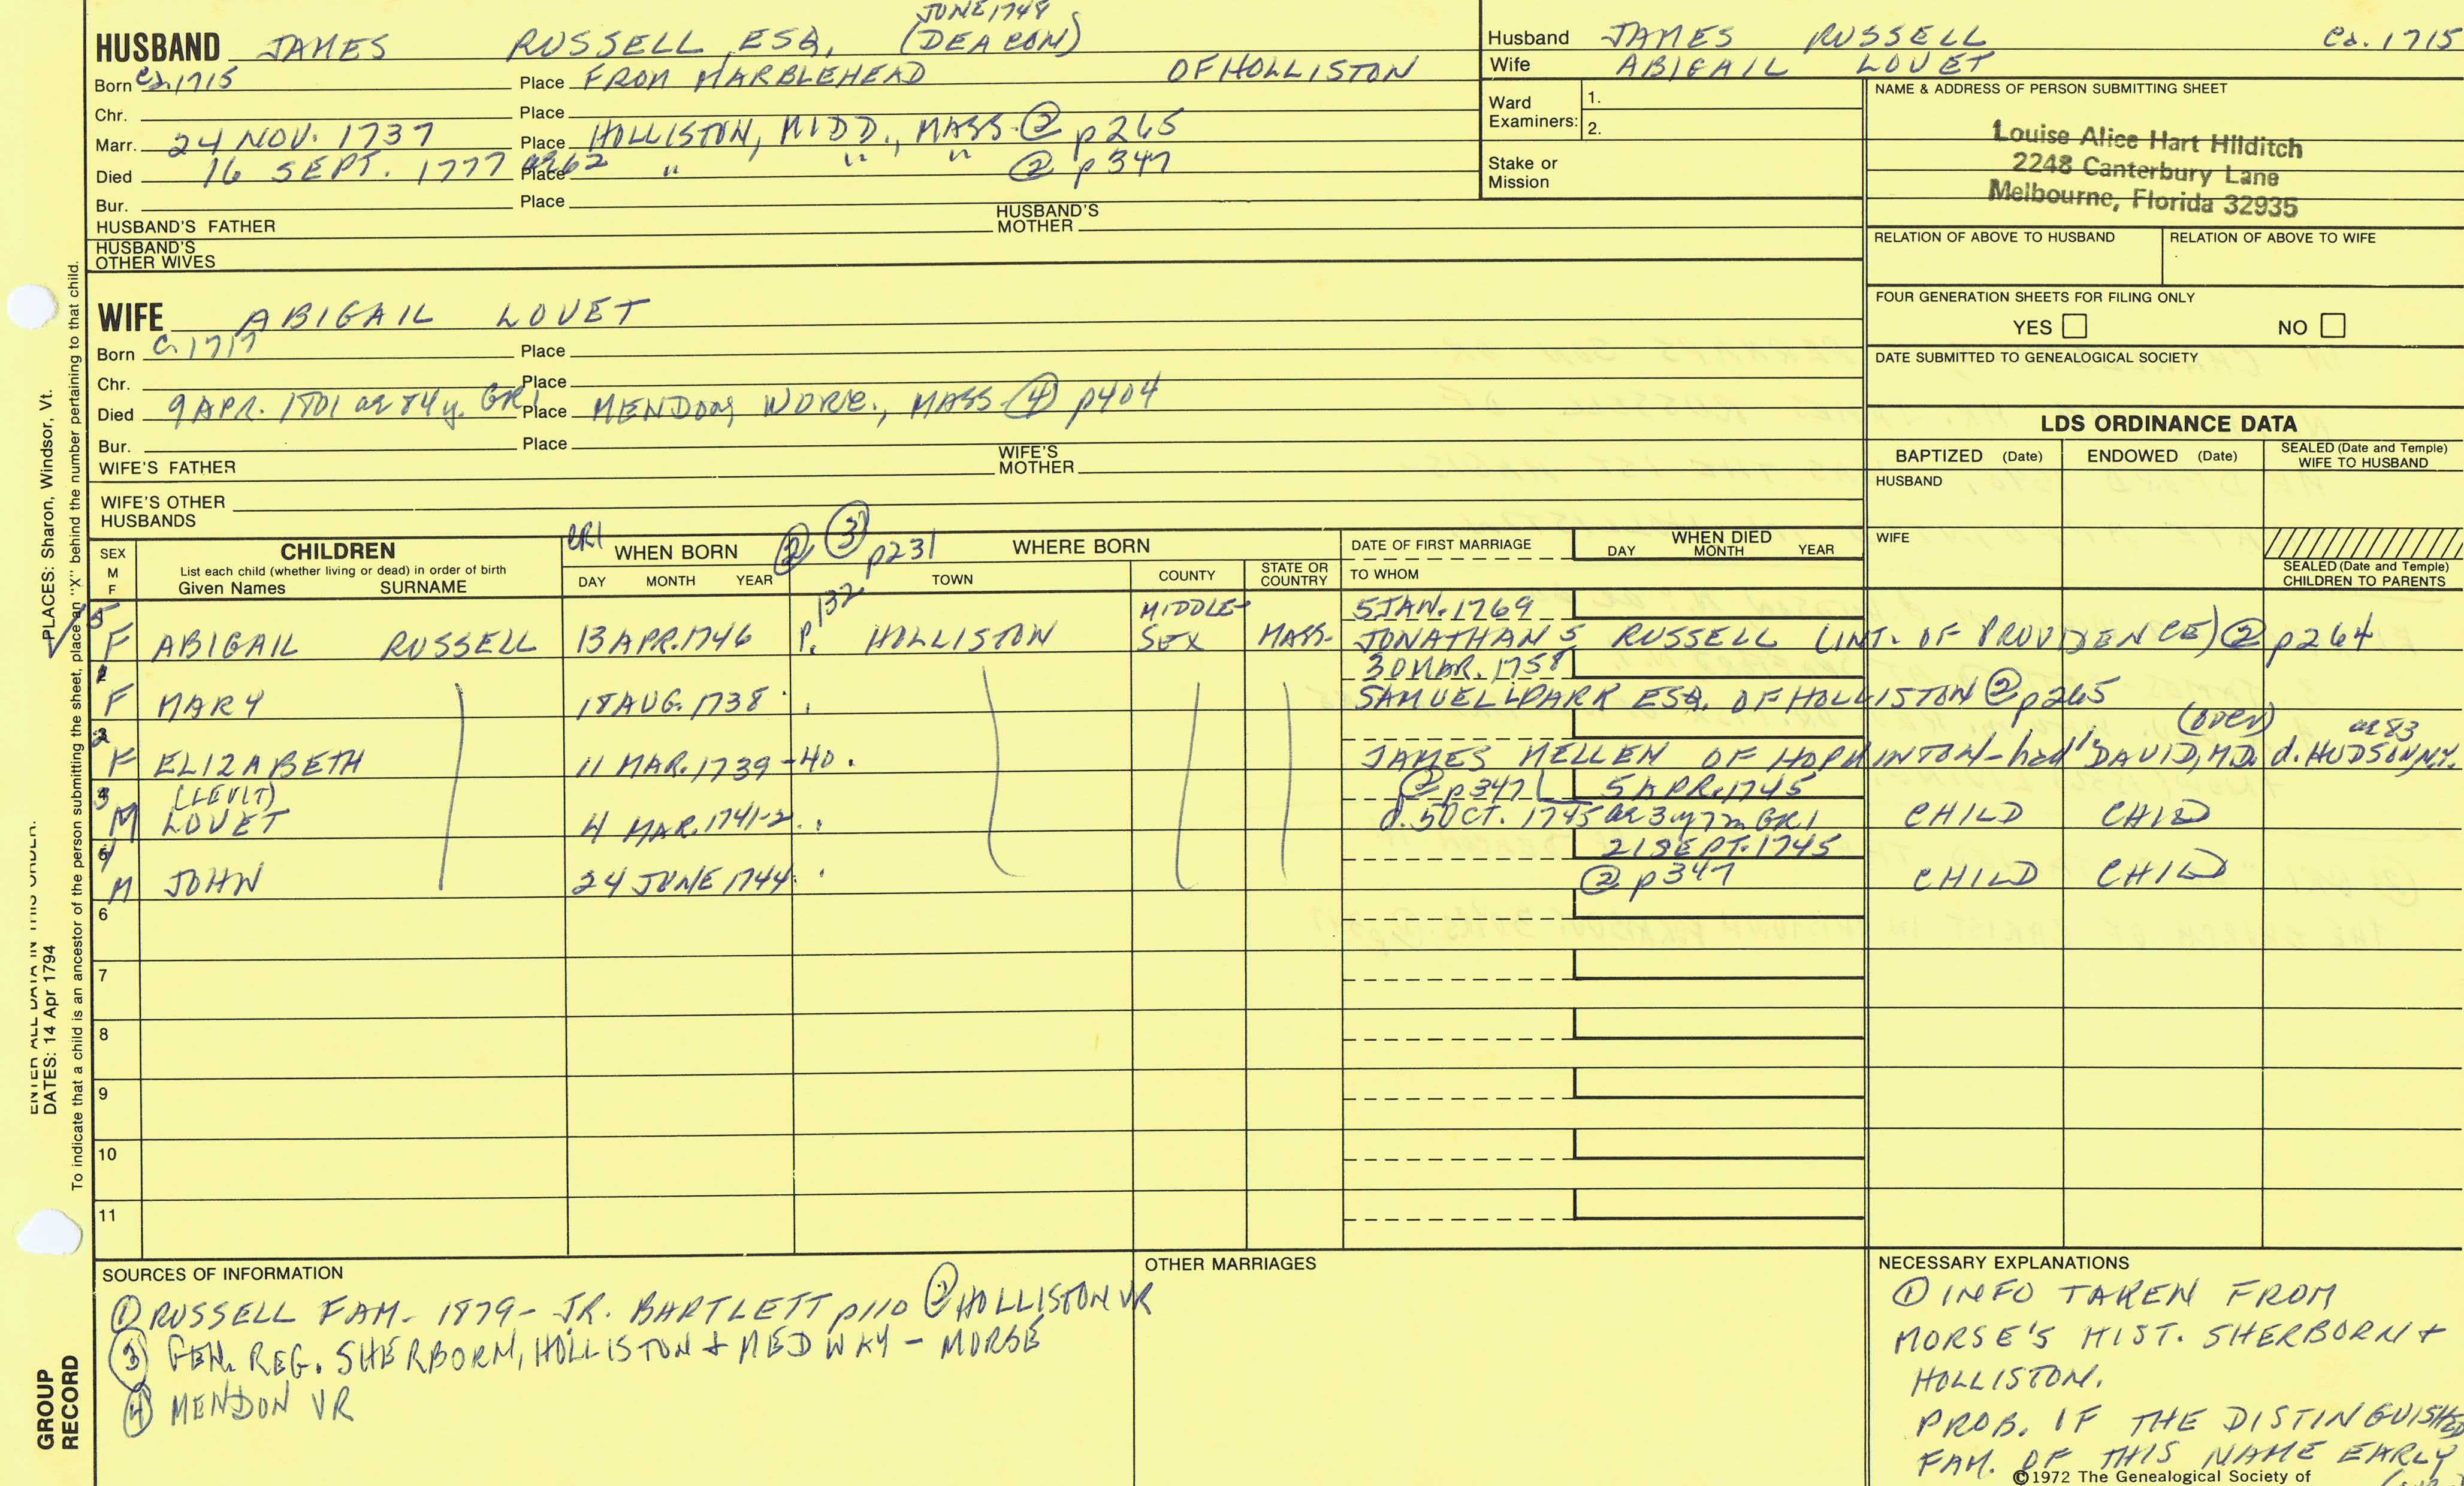 JUNE 1748
HUSBAND JAMES RUSSELL, ESQ. (DEACON)
Born Ca. 1715 Place FROM MARBLEHEAD OF HOLLISTON
Chr. Place
Marr. 24 NOV. 1737 Place HOLLISTON, MIDD., MASS. ② p265
Died 16 SEPT. 1777 ae 62 Place " " " ② p347
Bur. Place
HUSBAND'S FATHER HUSBAND'S MOTHER
HUSBAND'S OTHER WIVES
Husband JAMES RUSSELL Ca. 1715
Wife ABIGAIL LOVET
Ward Examiners: 1.
2.
Stake or Mission
NAME & ADDRESS OF PERSON SUBMITTING SHEET
Louise Alice Hart Hilditch
2248 Canterbury Lane
Melbourne, Florida 32935
RELATION OF ABOVE TO HUSBAND RELATION OF ABOVE TO WIFE
FOUR GENERATION SHEETS FOR FILING ONLY
YES NO
DATE SUBMITTED TO GENEALOGICAL SOCIETY
WIFE ABIGAIL LOVET
Born C. 1717 Place
Chr. Place
Died 9 APR. 1801 ae 84 y. GR1 Place MENDON, WORC., MASS ④ p404
Bur. Place
WIFE'S FATHER WIFE'S MOTHER
WIFE'S OTHER HUSBANDS
LDS ORDINANCE DATA
BAPTIZED (Date) ENDOWED (Date) SEALED (Date and Temple) WIFE TO HUSBAND
HUSBAND
WIFE
SEALED (Date and Temple) CHILDREN TO PARENTS
SEX M F
CHILDREN
List each child (whether living or dead) in order of birth
Given Names SURNAME
CR1 WHEN BORN ② ③ p231
DAY MONTH YEAR
WHERE BORN
TOWN COUNTY STATE OR COUNTRY
DATE OF FIRST MARRIAGE
TO WHOM
WHEN DIED
DAY MONTH YEAR
5 F ABIGAIL RUSSELL 13 APR. 1746 P. 132 HOLLISTON MIDDLE-SEX MASS. 5 JAN. 1769
JONATHAN 5 RUSSELL (INT. OF PROVIDENCE) ② p264
1 F MARY 18 AUG. 1738 30 MAR. 1758
SAMUEL PARK ESQ. OF HOLLISTON ② p265
2 F ELIZABETH 11 MAR. 1739-40
JAMES MELLEN OF HOPKINTON - had DAVID, M.D. d. HUDSON, N.Y. ae 83
3 M (LEVIT) LOVET 4 MAR. 1741-2 ② p347 5 APR. 1745
d. 5 OCT. 1745 ae 3 y 7 m GR1 CHILD CHILD
4 M JOHN 24 JUNE 1744 21 SEPT. 1745
② p347 CHILD CHILD
6
7
8
9
10
11
SOURCES OF INFORMATION
① RUSSELL FAM - 1879 - J.R. BARTLETT p110 ② HOLLISTON VR
③ GEN. REG. SHERBORN, HOLLISTON + MEDWAY - MORSE
④ MENDON VR
OTHER MARRIAGES
NECESSARY EXPLANATIONS
① INFO TAKEN FROM
MORSE'S HIST. SHERBORN +
HOLLISTON.
PROB. OF THE DISTINGUISHED
FAM. OF THIS NAME EARLY
©1972 The Genealogical Society of
PLACES: Sharon, Windsor, Vt.
ENTER ALL DATA IN THIS ORDER:
DATES: 14 Apr 1794
To indicate that a child is an ancestor of the person submitting the sheet, place an "X" behind the number pertaining to that child.
GROUP RECORD